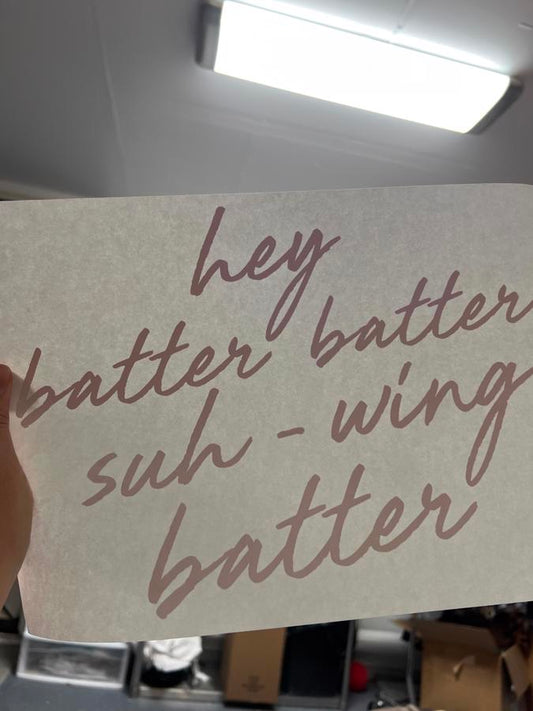 hey
batter batter
suh-wing
batter